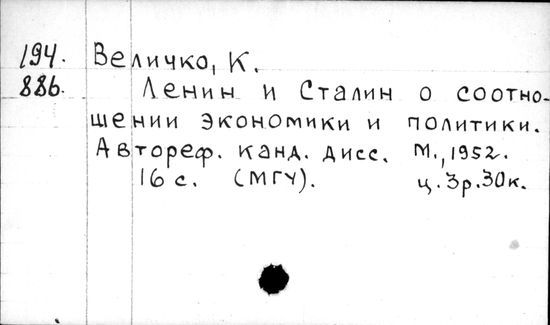 194. Величко, К.
886. Ленин и Сталин о соотно-
шении экономики и политики.
Автореф. канд. дисс. М., 1952.
16 с. (МГУ). ц. 3р. 30к.